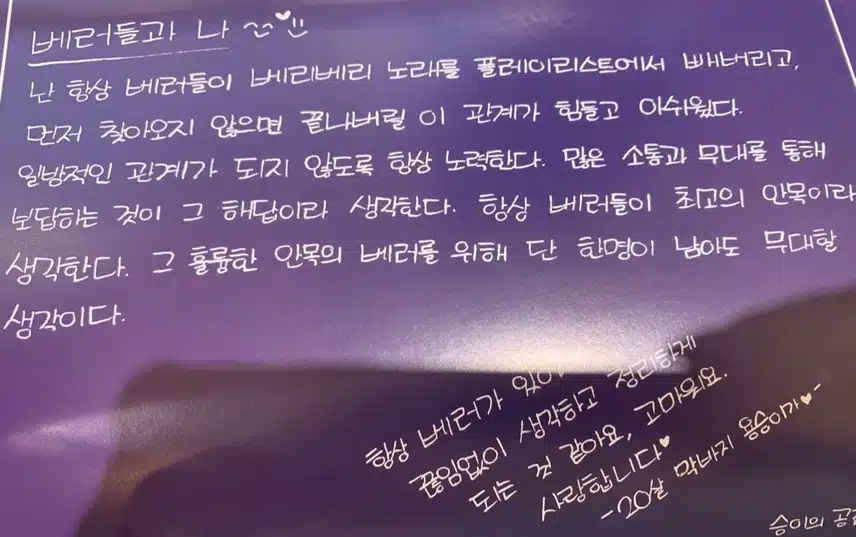 베러들과 나
난 항상 베러들이 베리베리 노래를 플레이리스트에서 빼버리고,
먼저 찾아오지 않으면 끝나버릴 이 관계가 힘들고 아쉬웠다.
일방적인 관계가 되지 않도록 항상 노력한다. 많은 소통과 무대를 통해
보답하는 것이 그 해답이라 생각한다. 항상 베러들이 최고의 안목이라
생각한다. 그 훌륭한 안목의 베러를 위해 단 한명이 남아도 무대할
생각이다.
항상 베러가 있어
끊임없이 생각하고 정리하게
되는 것 같아요, 고마워요.
사랑합니다♥
-20살 막바지 용승이가♥-
승이의